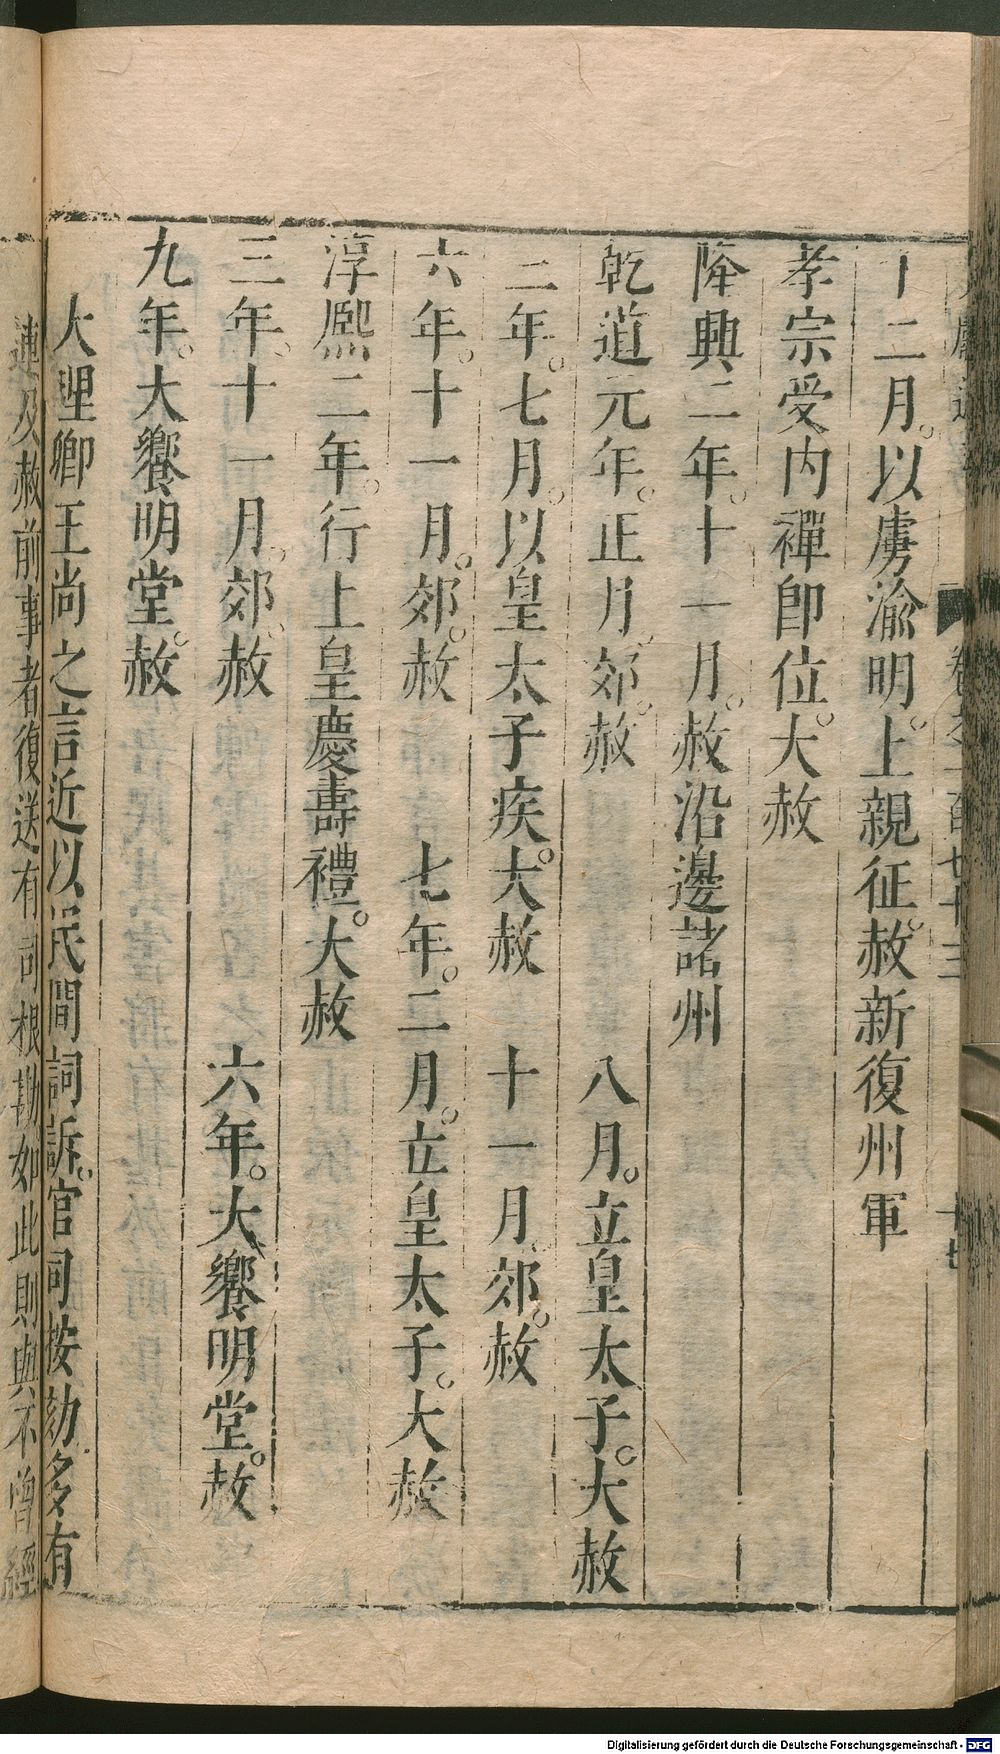 十二月。以虜渝明。上親征。赦新復州軍
孝宗受內禪即位。大赦
隆興二年。十一月。赦沿邊諸州
乾道元年。正月。郊。赦　八月。立皇太子。大赦
二年。七月。以皇太子疾。大赦　十一月。郊。赦
六年。十一月。郊。赦　七年。二月。立皇太子。大赦
淳熙二年。行上皇慶壽禮。大赦
三年。十一月。郊。赦　六年。大饗明堂。赦
九年。大饗明堂。赦
大理卿王尚之言近以民間詞訴。官司按劾多有
連及赦前事者復送有司根勘如此則與不曾經
Digitalisierung gefördert durch die Deutsche Forschungsgemeinschaft - DFG